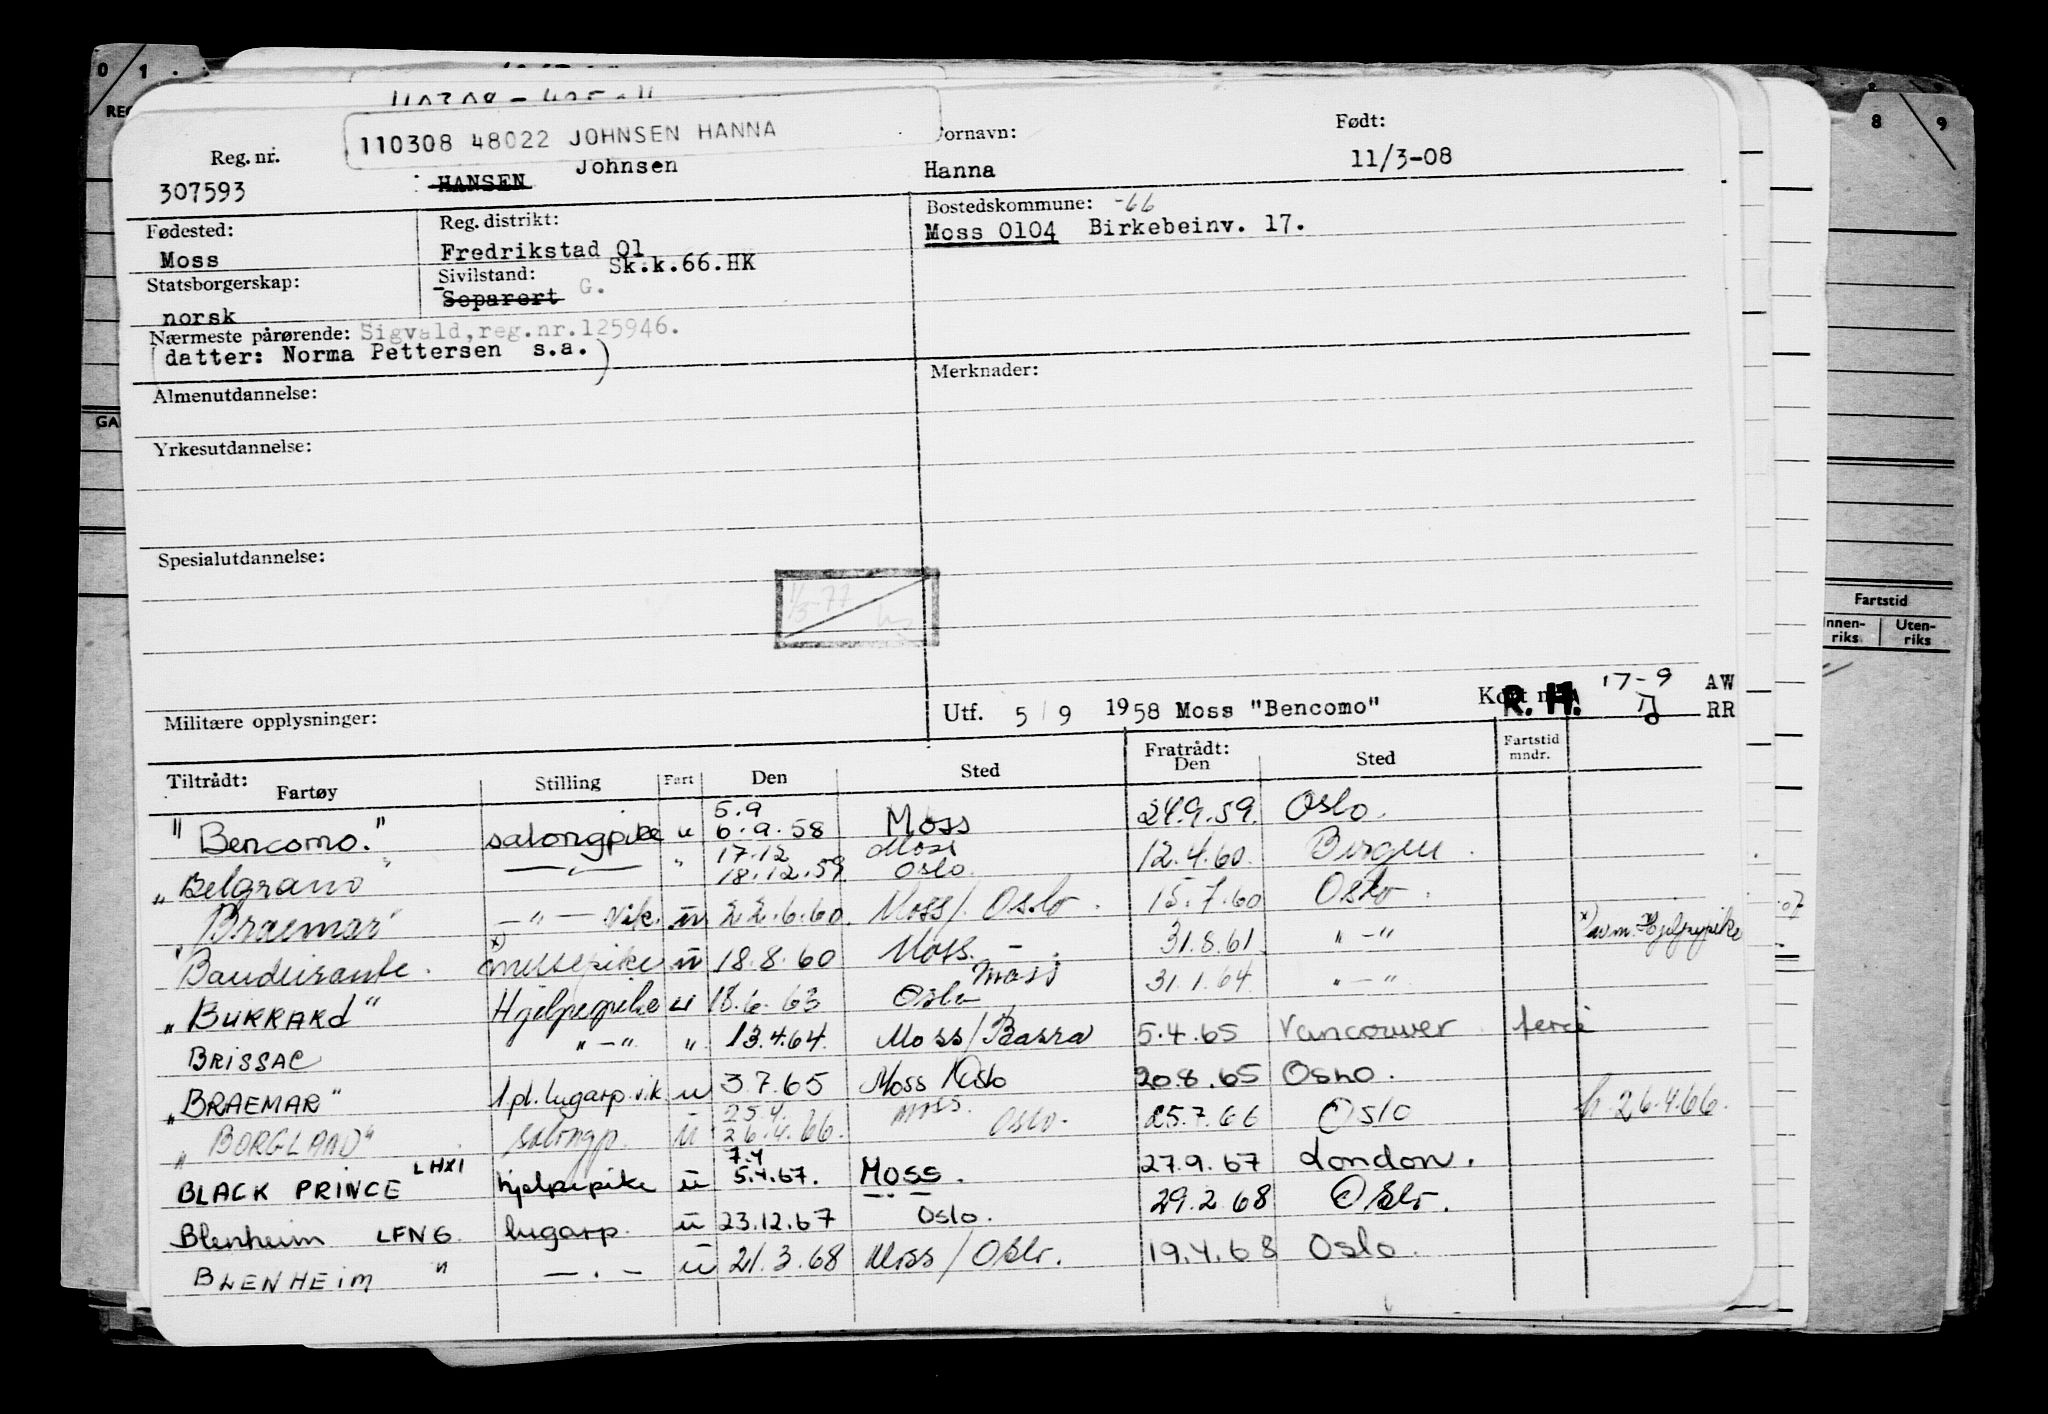 110308 48022 JOHNSEN HANNA
Reg. nr. Fornavn: Født:
307593 HANSEN Johnsen Hanna 11/3-08
Fødested: Reg. distrikt: Bostedskommune: -66
Moss Fredrikstad 01 Moss 0104 Birkebeinv. 17.
Statsborgerskap: Sivilstand: Sk.k.66.HK
norsk Separert G.
Nærmeste pårørende: Sigvald, reg.nr.125946.
(datter: Norma Pettersen s.a.)
Almenutdannelse: Merknader:
Yrkesutdannelse:
Spesialutdannelse:
1/3-77
Militære opplysninger: Utf. 5/9 1958 Moss "Bencomo" R. H. 17-9 AW
RR
Tiltrådt: Fratrådt: Fartstid
Fartøy Stilling Fart Den Sted Den Sted mndr.
"Bencomo." salongpike u 5.9 6.9.58 Moss 24.9.59. Oslo.
"Belgrano" —"— " 17.12 18.12.59 Moss Oslo. 12.4.60. Bergen.
"Braemar" —"— vik. u 22.6.60. Moss/Oslo. 15.7.60 Oslo.
Bandeirante. x) messepike u 18.8.60 Moss. 31.8.61 "—" x) avm. Hjelpepike
"BURRARd" Hjelpepike u 18.6.63 Oslo Moss 31.1.64. "—"
BRISSAC "—" " 13.4.64. Moss/Basra 5.4.65 Vancouver ferie
"BRAEMAR" 1 pl. lugarp. vik. u 3.7.65 Moss/Oslo 20.8.65 Oslo.
"BORGLAND" salongp. u 25.4. 26.4.66. Moss. Oslo. 25.7.66 Oslo h. 26.4.66.
BLACK PRINCE LHXI hjelpepike u 7.4 5.4.67. Moss. 27.9.67 London.
Blenheim LFNG lugarp. u 23.12.67 Oslo. 29.2.68 Oslo.
BLENHEIM " —.— u 21.3.68 Moss/Oslo. 19.4.68 Oslo.
Fartstid
Innen-riks Uten-riks
8 9
0 1